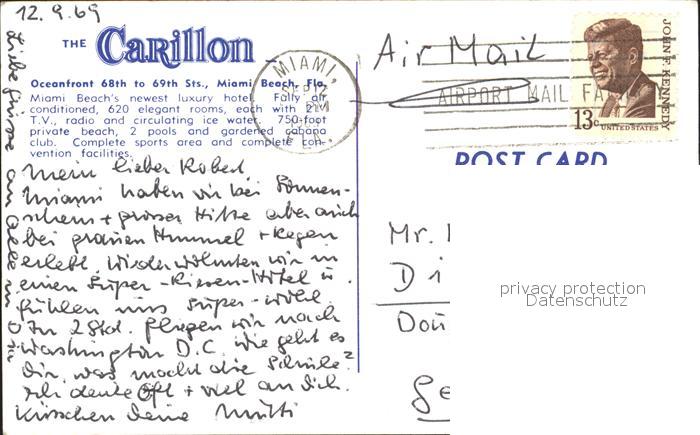 12.9.69
THE Carillon
Oceanfront 68th to 69th Sts., Miami Beach, Fla.
Miami Beach's newest luxury hotel. Fully air
conditioned, 620 elegant rooms, each with 21"
T.V., radio and circulating ice water. 750-foot
private beach, 2 pools and gardened cabana
club. Complete sports area and complete con-
vention facilities.
Mein lieber Robert,
Miami haben wir bei Sonnen-
schein + grosser Hitze aber auch
bei grauem Himmel + Regen
erlebt. Wieder wohnten wir in
einem Super-Riesen-Hotel u.
fühlen uns super-wohl.
In 2 Std. fliegen wir nach
Washington D.C. Wie geht es
Dir, was macht die Schule?
Ich denke oft + viel an Dich.
Küsschen Deine Mutti
Liebe Grüsse an alle
MIAMI,
FLA.
Air Mail
AIRPORT MAIL FA
JOHN F. KENNEDY
13c UNITED STATES
POST CARD
Mr.
Di
Dou
Ge
privacy protection
Datenschutz